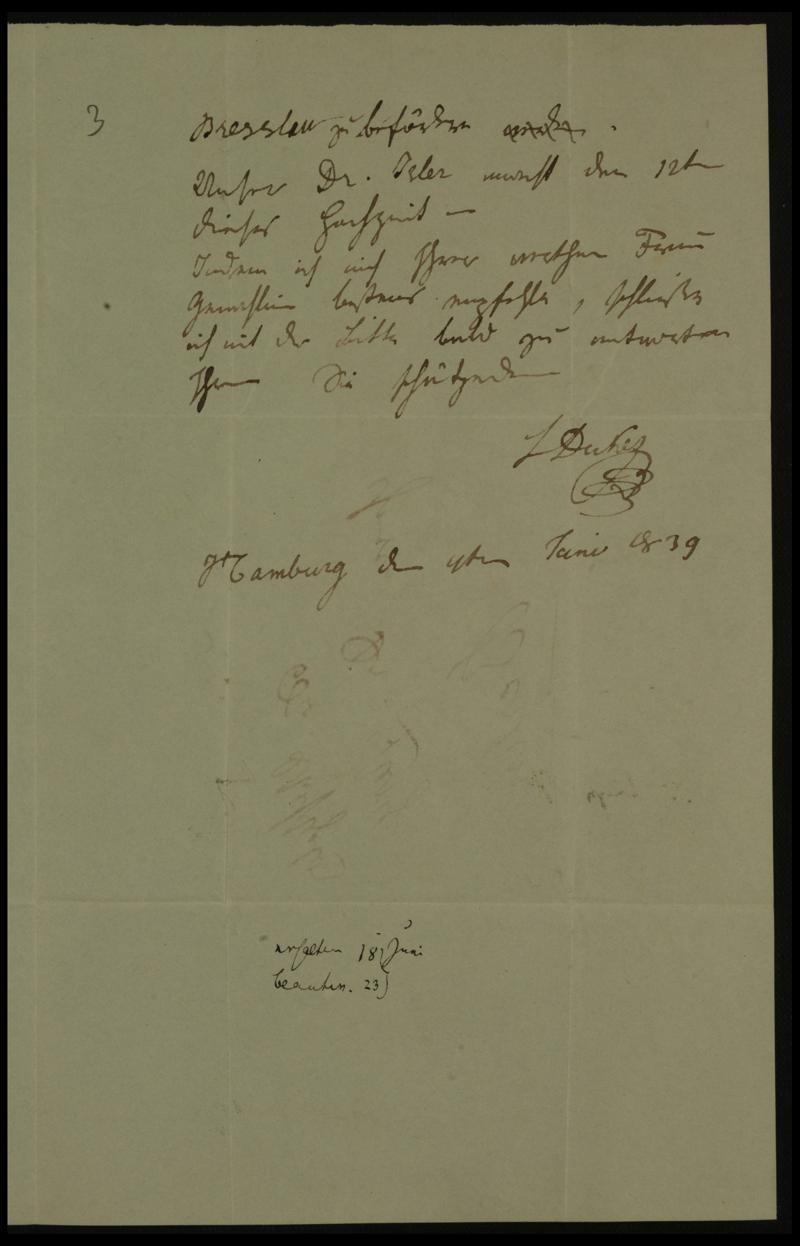 3
Bresslau zu befördern .
Unser Dr. Isler macht den 12ten
dieses Hochzeit —
Indem ich mich Ihrer werthen Frau
Gemahlin bestens empfehle, schließe
ich mit der Bitte bald zu antworten
Ihrem Sie schätzenden
L Dukes
Hamburg den 9ten Juni 1839
erhalten 18 Juni
beantw. 23